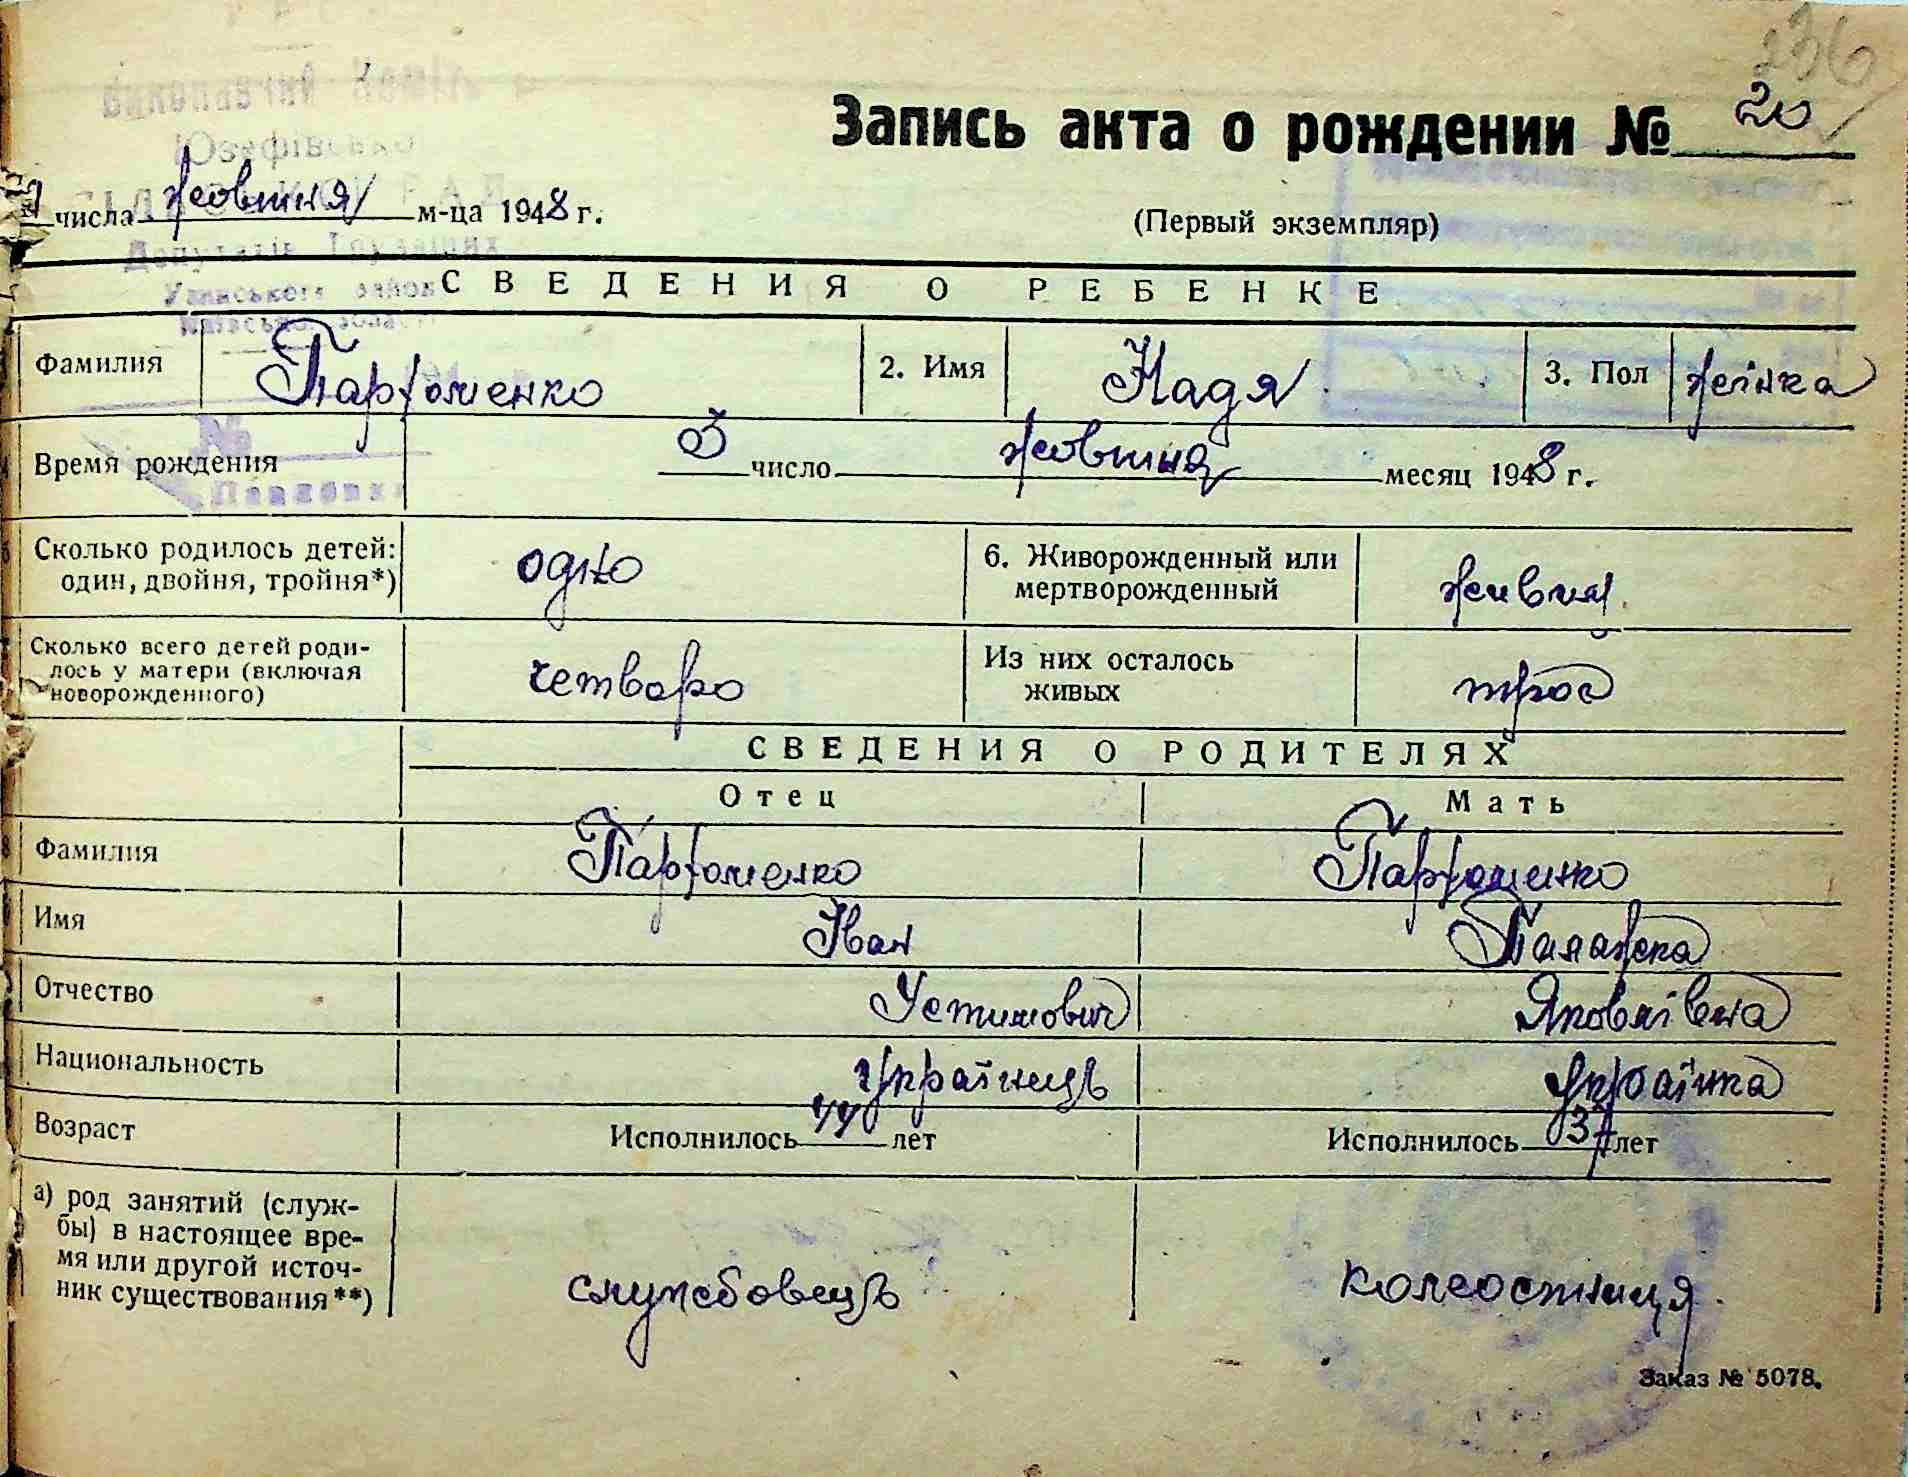 236
Запись акта о рождении № 20
числа жовтня м-ца 1948 г.
(Первый экземпляр)
Юзефівсько
СІЛЬСЬКОЇ РАД
Депутатів Трудящих
СВЕДЕНИЯ О РЕБЕНКЕ
Фамилия Парфоменко 2. Имя Надя 3. Пол жінка
Время рождения 3 число жовтня месяц 1948 г.
Сколько родилось детей: один, двойня, тройня*) одно 6. Живорожденный или мертворожденный живий
Сколько всего детей роди-
лось у матери (включая
новорожденного) четверо Из них осталось живых троє
СВЕДЕНИЯ О РОДИТЕЛЯХ
Отец Мать
Фамилия Парфоменко Парфоменко
Имя Іван Палажка
Отчество Устимович Яковлівна
Национальность українець українка
Возраст Исполнилось 44 лет Исполнилось 37 лет
а) род занятий (служ-
бы) в настоящее вре-
мя или другой источ-
ник существования**) службовець колгостниця
Заказ № 5078.